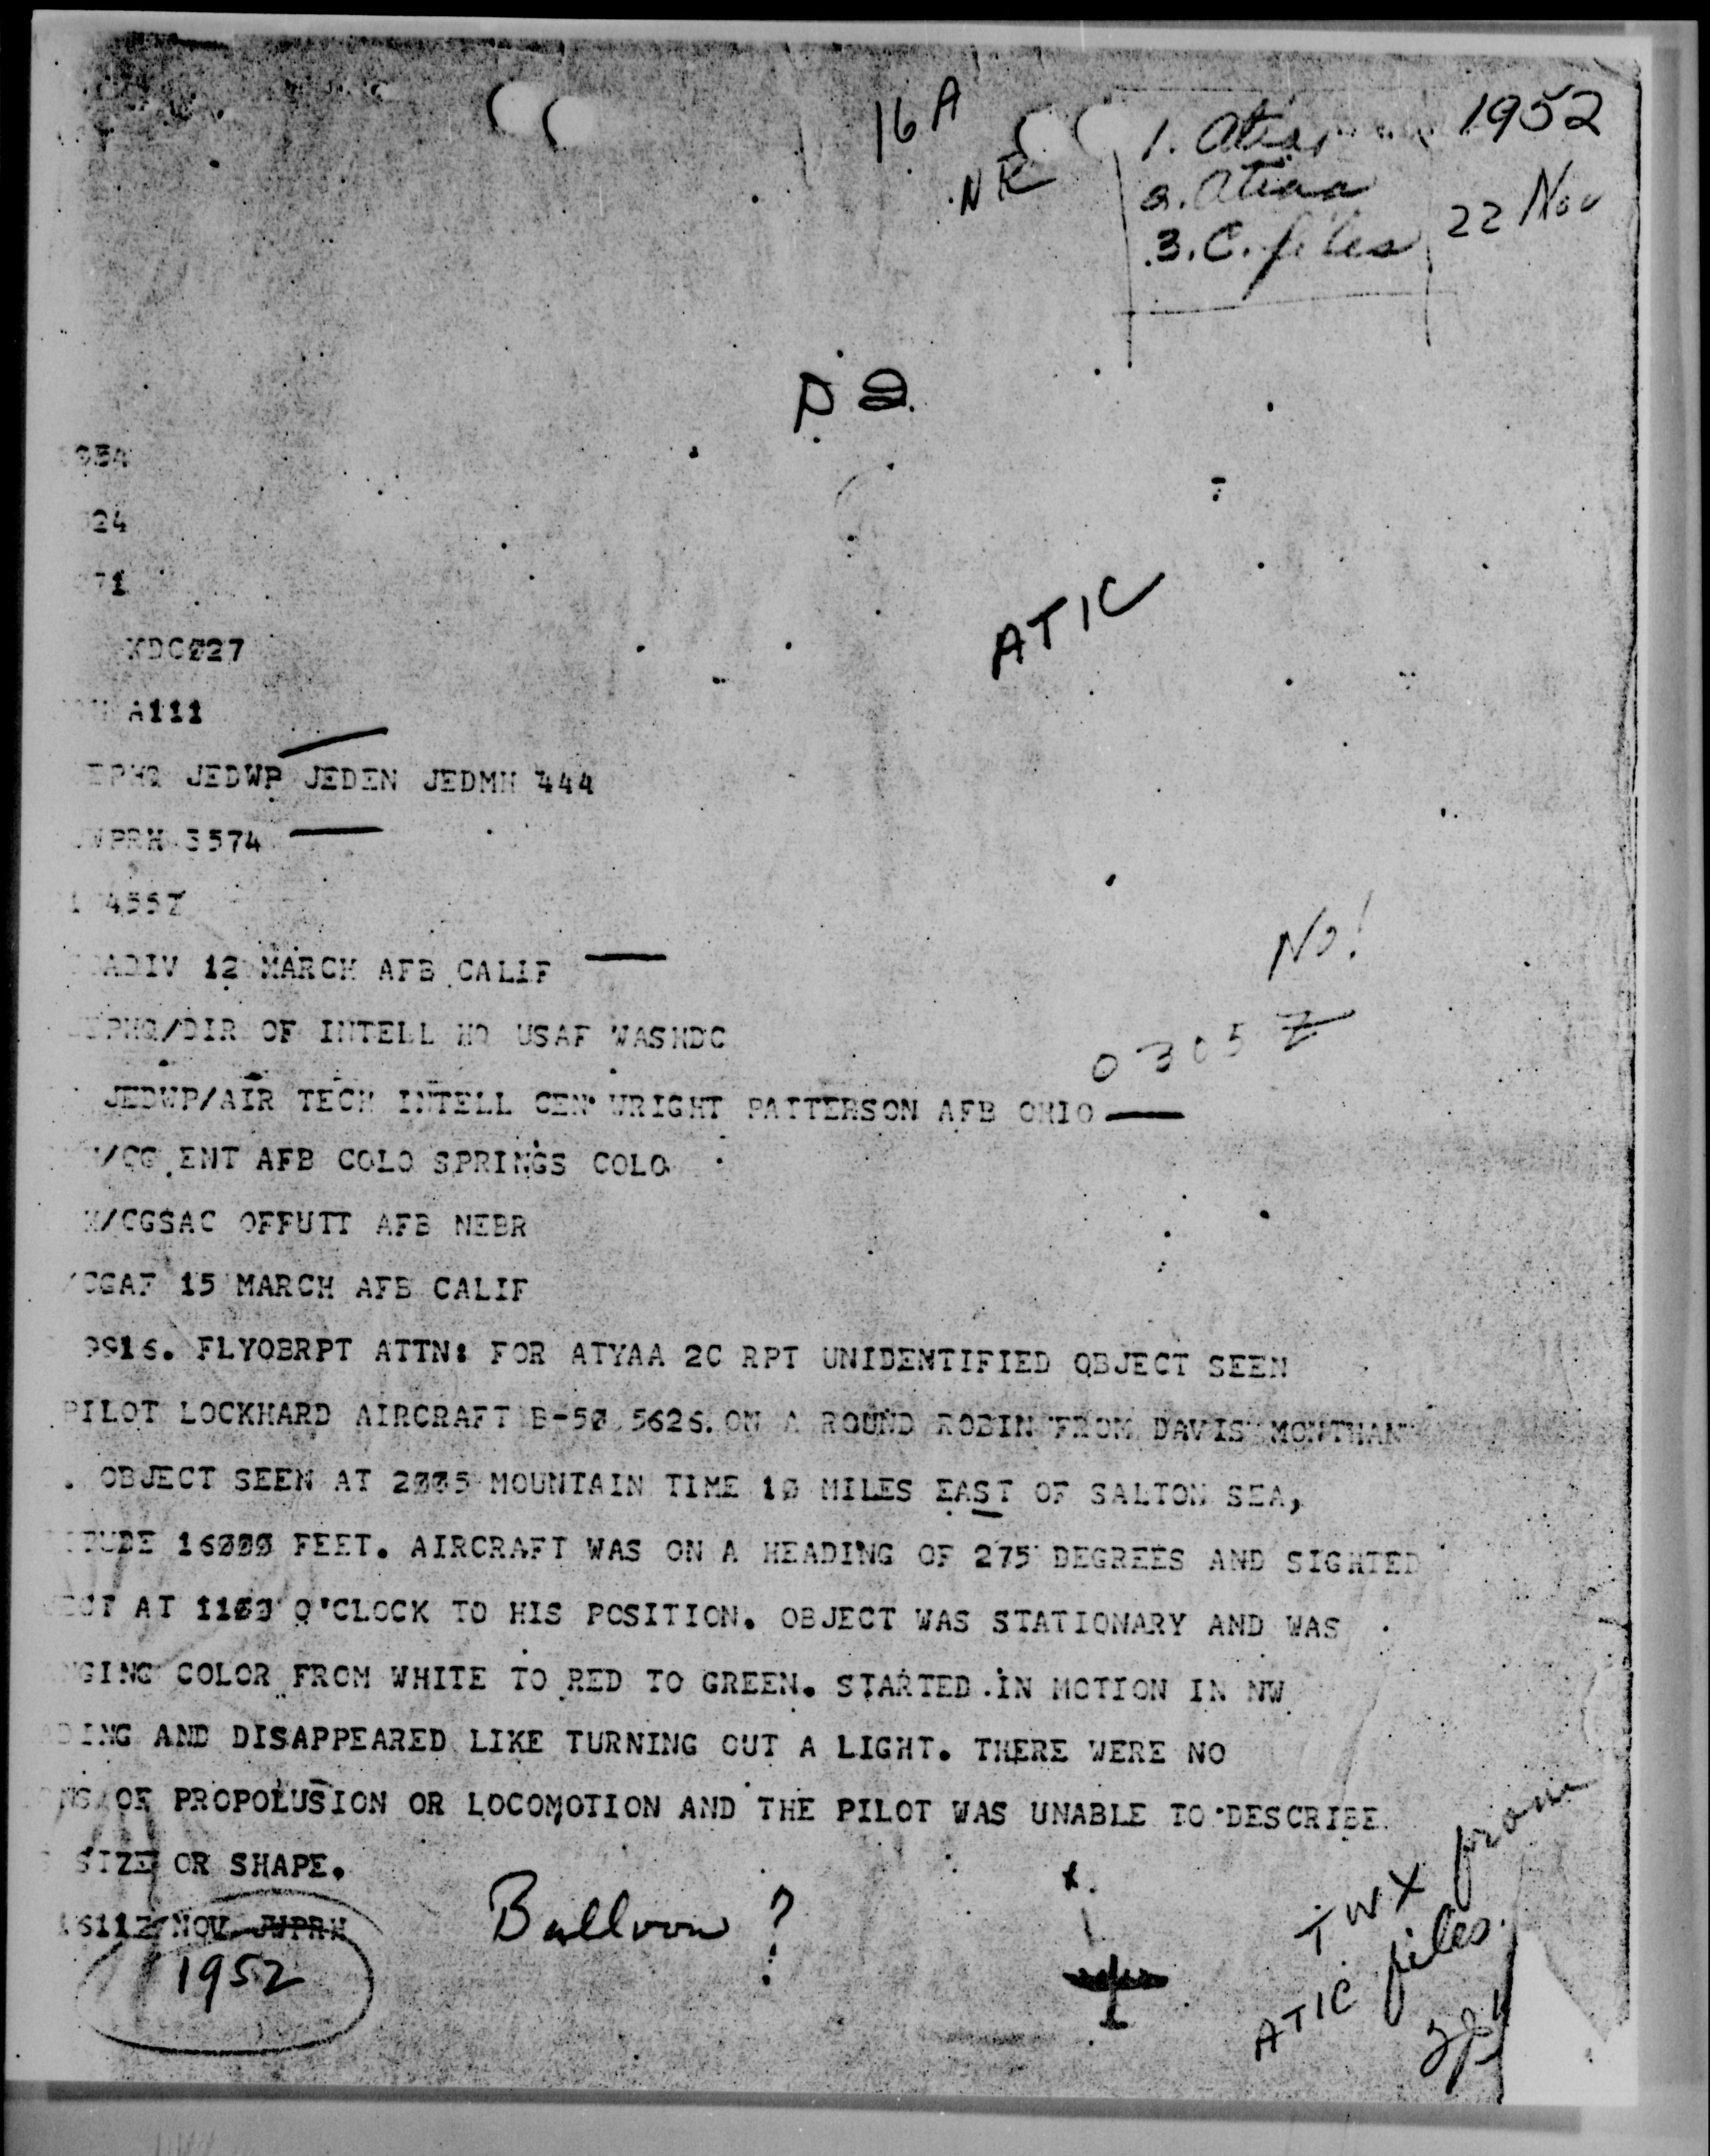 16 A
NR
1952
22 Nov
3. C. files
ATIC
954
24
71
XDC027
A111
JEDWP JEDEN JEDMH 444
3574
455Z
ADIV 12 MARCH AFB CALIF
No!
/DIR OF INTELL HQ USAF WASHDC
0305 Z
JEDWP/AIR TECH INTELL CEN WRIGHT PATTERSON AFB OHIO
/CG ENT AFB COLO SPRINGS COLO
/CGSAC OFFUTT AFB NEBR
/CGAF 15 MARCH AFB CALIF
9916. FLYOBRPT ATTN: FOR ATYAA 2C RPT UNIDENTIFIED OBJECT SEEN
PILOT LOCKHARD AIRCRAFT B-50 5626. ON A ROUND ROBIN FROM DAVIS MONTHAN
. OBJECT SEEN AT 2005 MOUNTAIN TIME 10 MILES EAST OF SALTON SEA,
TUDE 16000 FEET. AIRCRAFT WAS ON A HEADING OF 275 DEGREES AND SIGHTED
ECT AT 1100 O'CLOCK TO HIS POSITION. OBJECT WAS STATIONARY AND WAS
NGING COLOR FROM WHITE TO RED TO GREEN. STARTED IN MOTION IN NW
DING AND DISAPPEARED LIKE TURNING OUT A LIGHT. THERE WERE NO
NS OF PROPOLUSION OR LOCOMOTION AND THE PILOT WAS UNABLE TO DESCRIBE
SIZE OR SHAPE.
NOV JWPRH
1952
Balloon ?
TWX from
ATIC files